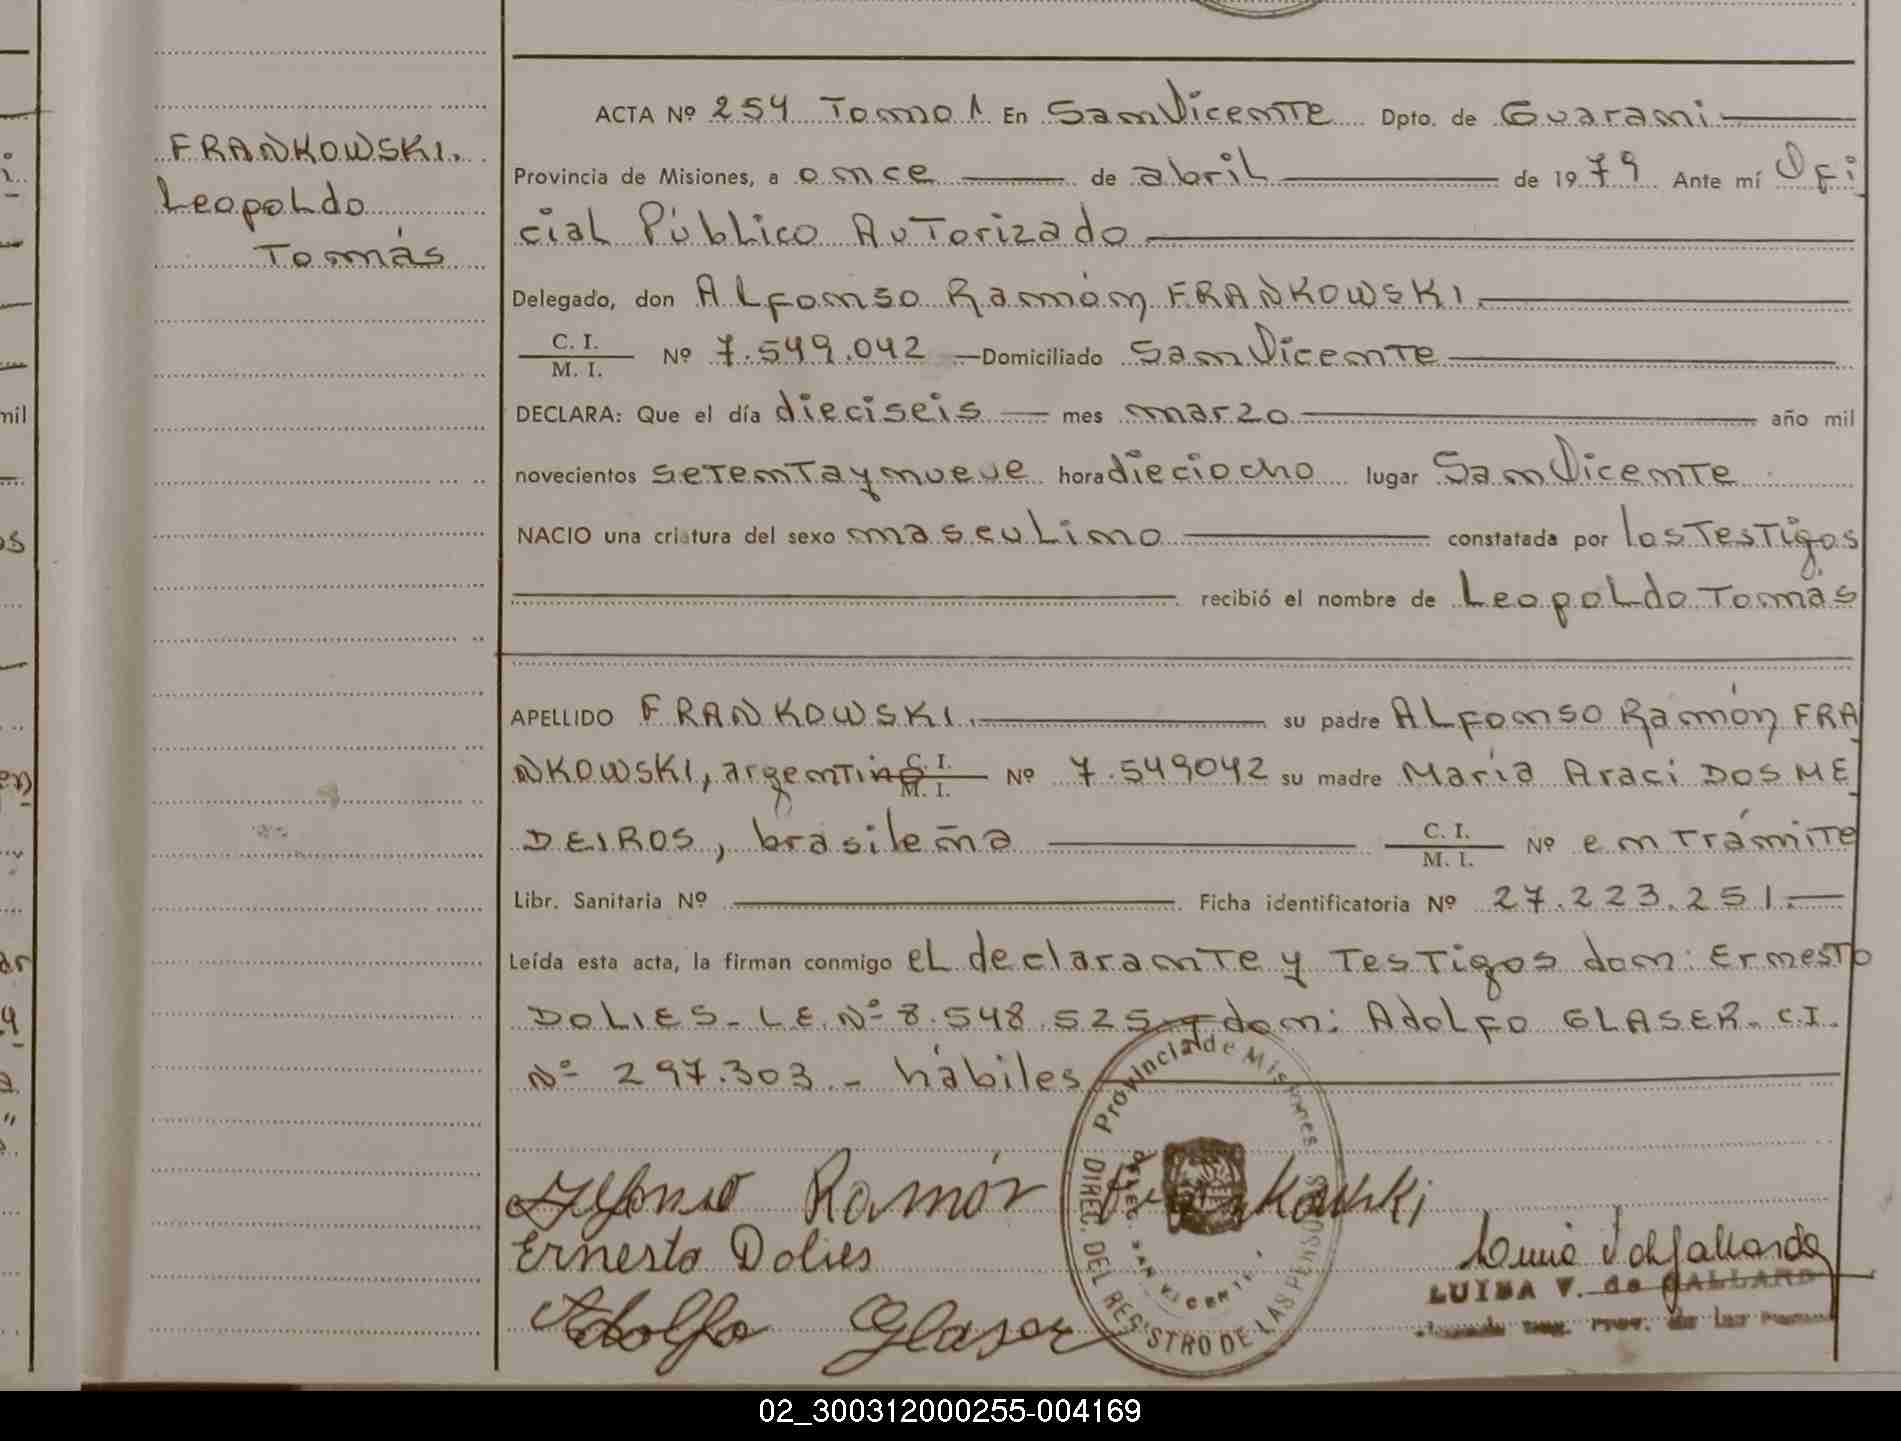 FRANKOWSKI.
Leopoldo
Tomás
ACTA Nº 254 Tomo 1 En San Vicente Dpto. de Guarani
Provincia de Misiones, a once de abril de 1979 Ante mí Ofi
cial Público Autorizado
Delegado, don Alfonso Ramón FRANKOWSKI.
C. I. / M. I. Nº 7.549.042 Domiciliado San Vicente
DECLARA: Que el día dieciseis mes marzo año mil
novecientos setenta y nueve hora dieciocho lugar San Vicente
NACIO una criatura del sexo masculino constatada por los Testigos
recibió el nombre de Leopoldo Tomás
APELLIDO FRANKOWSKI. su padre Alfonso Ramón FRA
NKOWSKI, argentino C. I. / M. I. Nº 7.549042 su madre María Araci DOS ME
DEIROS, brasileña C. I. / M. I. Nº en Trámite
Libr. Sanitaria Nº Ficha identificatoria Nº 27.223.251.
Leída esta acta, la firman conmigo el declarante y Testigos don: Ernesto
DOLIES - L.E. Nº 8.548.525 y don: Adolfo GLASER - C.I.
Nº 297.303 - hábiles
Provincia de Misiones
DIREC. DEL REGISTRO DE LAS PERSONAS
DELEG. SAN VICENTE
Alfonso Ramón Frankowski
Ernesto Dolies
Adolfo Glaser
LUISA V. de GALLARDO
02_300312000255-004169